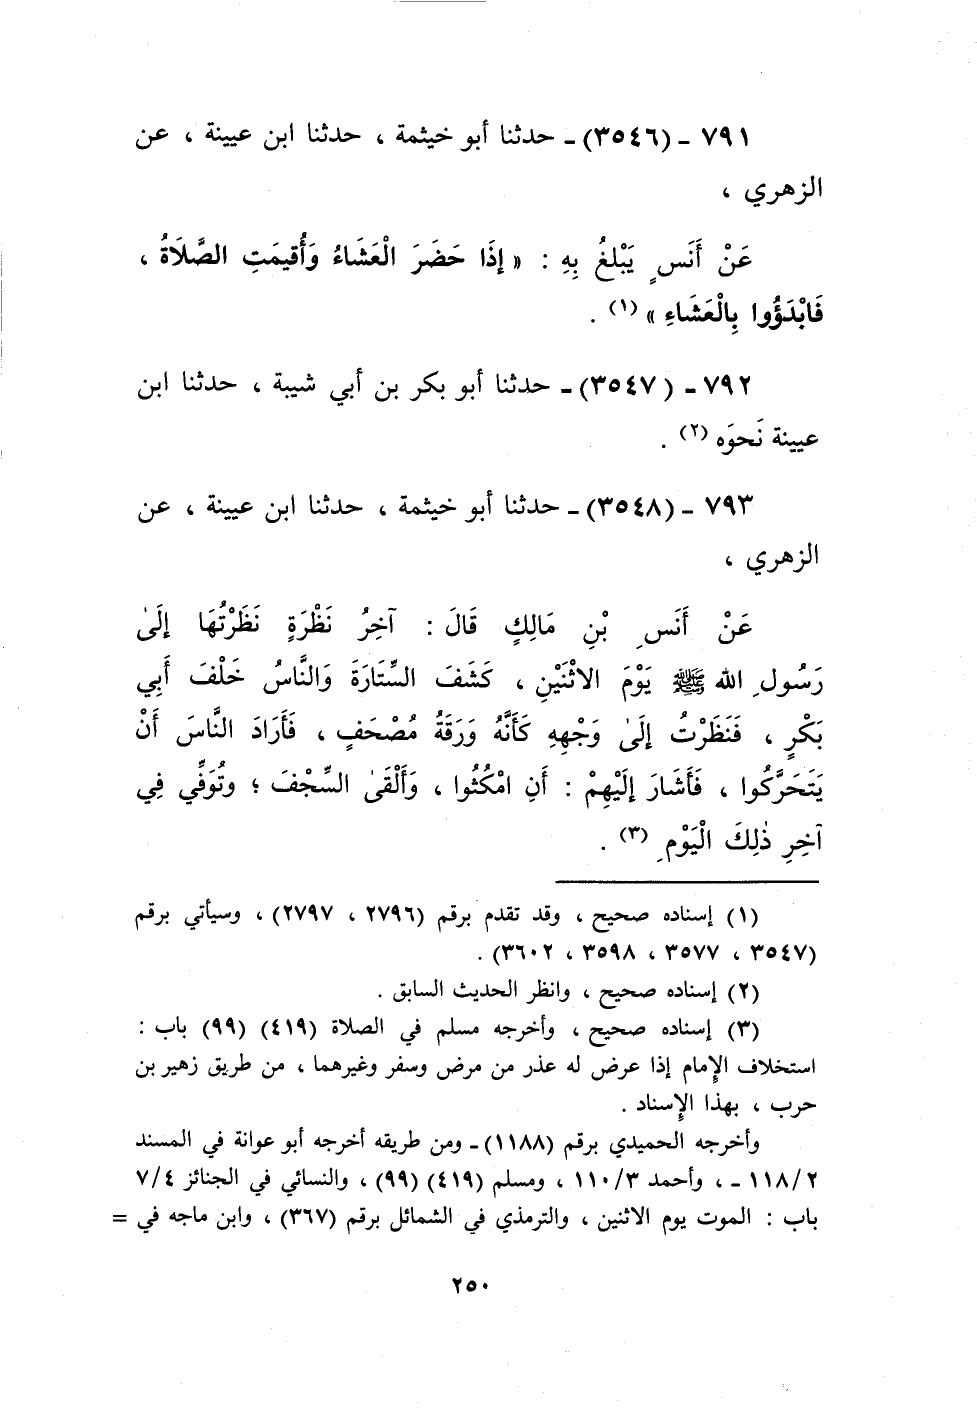 ٧٩١ - (٣٥٤٦) - حدثنا أبو خيثمة ، حدثنا ابن عيينة ، عن
الزهري ،
عَنْ أَنَسٍ يَبْلغُ بِهِ : « إِذَا حَضَرَ الْعَشَاءُ وَأُقيمَتِ الصَّلَاةُ ،
فَابْدَؤُوا بِالْعَشَاءِ » (١) .
٧٩٢ - (٣٥٤٧) - حدثنا أبو بكر بن أبي شيبة ، حدثنا ابن
عيينة نَحوَه (٢) .
٧٩٣ - (٣٥٤٨) - حدثنا أبو خيثمة ، حدثنا ابن عيينة ، عن
الزهري ،
عَنْ أَنَسِ بْنِ مَالِكٍ قَالَ : آخِرُ نَظْرَةٍ نَظَرْتُهَا إِلَىٰ
رَسُولِ الله ﷺ يَوْمَ الاثْنَيْنِ ، كَشَفَ السِّتَارَةَ وَالنَّاسُ خَلْفَ أَبِي
بَكْرٍ ، فَنَظَرْتُ إِلَىٰ وَجْهِهِ كَأَنَّهُ وَرَقَةُ مُصْحَفٍ ، فَأَرَادَ النَّاسَ أَنْ
يَتَحَرَّكُوا ، فَأَشَارَ إِلَيْهِمْ : أَنِ امْكُثُوا ، وَأَلْقَىٰ السِّجْفَ ؛ وتُوَفِّي فِي
آخِرِ ذٰلِكَ الْيَوْمِ (٣) .
(١) إسناده صحيح ، وقد تقدم برقم (٢٧٩٦ ، ٢٧٩٧) ، وسيأتي برقم
(٣٥٤٧ ، ٣٥٧٧ ، ٣٥٩٨ ، ٣٦٠٢) .
(٢) إسناده صحيح ، وانظر الحديث السابق .
(٣) إسناده صحيح ، وأخرجه مسلم في الصلاة (٤١٩) (٩٩) باب :
استخلاف الإمام إذا عرض له عذر من مرض وسفر وغيرهما ، من طريق زهير بن
حرب ، بهذا الإسناد .
وأخرجه الحميدي برقم (١١٨٨) - ومن طريقه أخرجه أبو عوانة في المسند
١١٨/٢ - ، وأحمد ١١٠/٣ ، ومسلم (٤١٩) (٩٩) ، والنسائي في الجنائز ٧/٤
باب : الموت يوم الاثنين ، والترمذي في الشمائل برقم (٣٦٧) ، وابن ماجه في =
٢٥٠